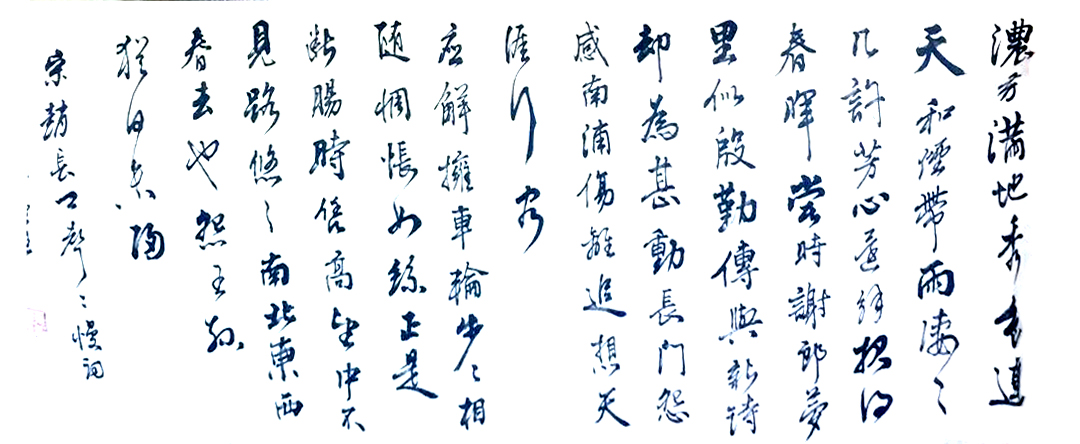 濃芳滿地秀色連
天和煙帶雨凄〻
几許芳心還解报得
春暉當時謝郎夢
里似殷勤傳與新詩
却為甚動長門怨
感南浦傷離追想天
涯行客
应解擁車輪步〻相
随惆悵如絲正是
斷腸時倍高望中不
見路悠〻南北東西
春去也怨王孙
猶自未歸
宋趙長卿聲〻慢詞